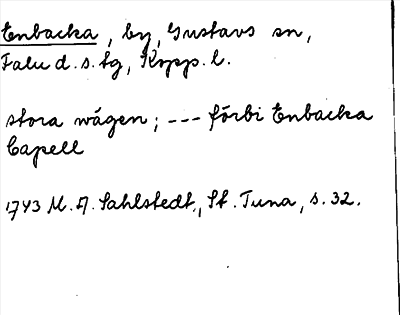 Enbacka, by, Gustavs sn,
Falu d.s. tg, Kopp. l.
stora wägen; --- förbi Enbacka
Capell
1743 M. A. Sahlstedt, St. Tuna, s. 32.